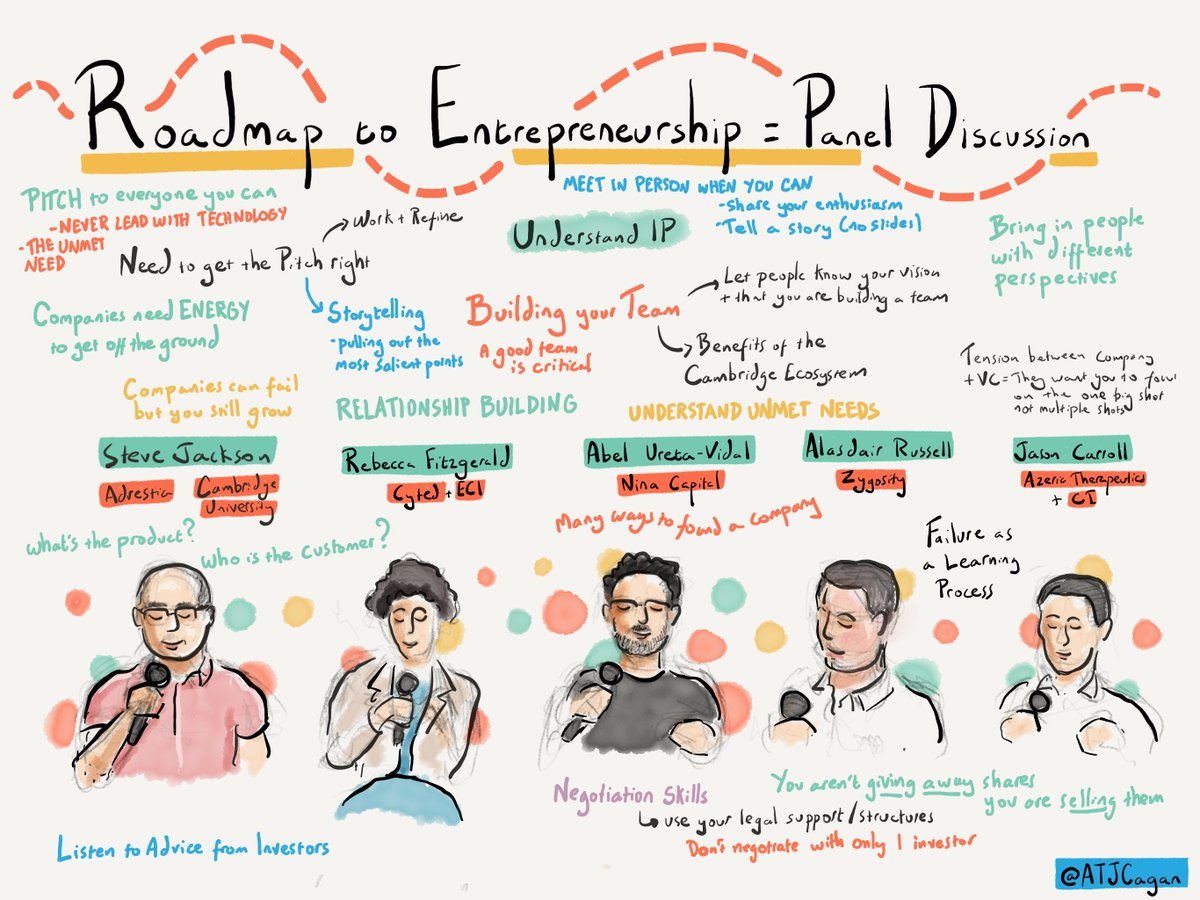 Roadmap to Entrepreneurship = Panel Discussion
PITCH to everyone you can
- NEVER LEAD WITH TECHNOLOGY
- THE UNMET
NEED
Need to get the Pitch right
Work + Refine
Storytelling
- pulling out the
most salient points
MEET IN PERSON WHEN YOU CAN
- share your enthusiasm
- Tell a story (no slides)
Understand IP
Bring in people
with different
perspectives
Companies need ENERGY
to get off the ground
Building your Team
A good team
is critical
Let people know your vision
+ that you are building a team
Benefits of the
Cambridge Ecosystem
Tension between company
+ VC = They want you to focus
on the one big shot
not multiple shots
Companies can fail
but you still grow
RELATIONSHIP BUILDING
UNDERSTAND UNMET NEEDS
Steve Jackson
Adrestia
Cambridge
University
Rebecca Fitzgerald
Cyted + ECI
Abel Ureta-Vidal
Nina Capital
Alasdair Russell
Zygosity
Jason Carroll
Azeria Therapeutics
+ CI
what's the product?
who is the customer?
Many ways to found a company
Failure as
a Learning
Process
Negotiation Skills
use your legal support/structures
Don't negotiate with only 1 investor
You aren't giving away shares
you are selling them
Listen to Advice from Investors
@ATJCagan